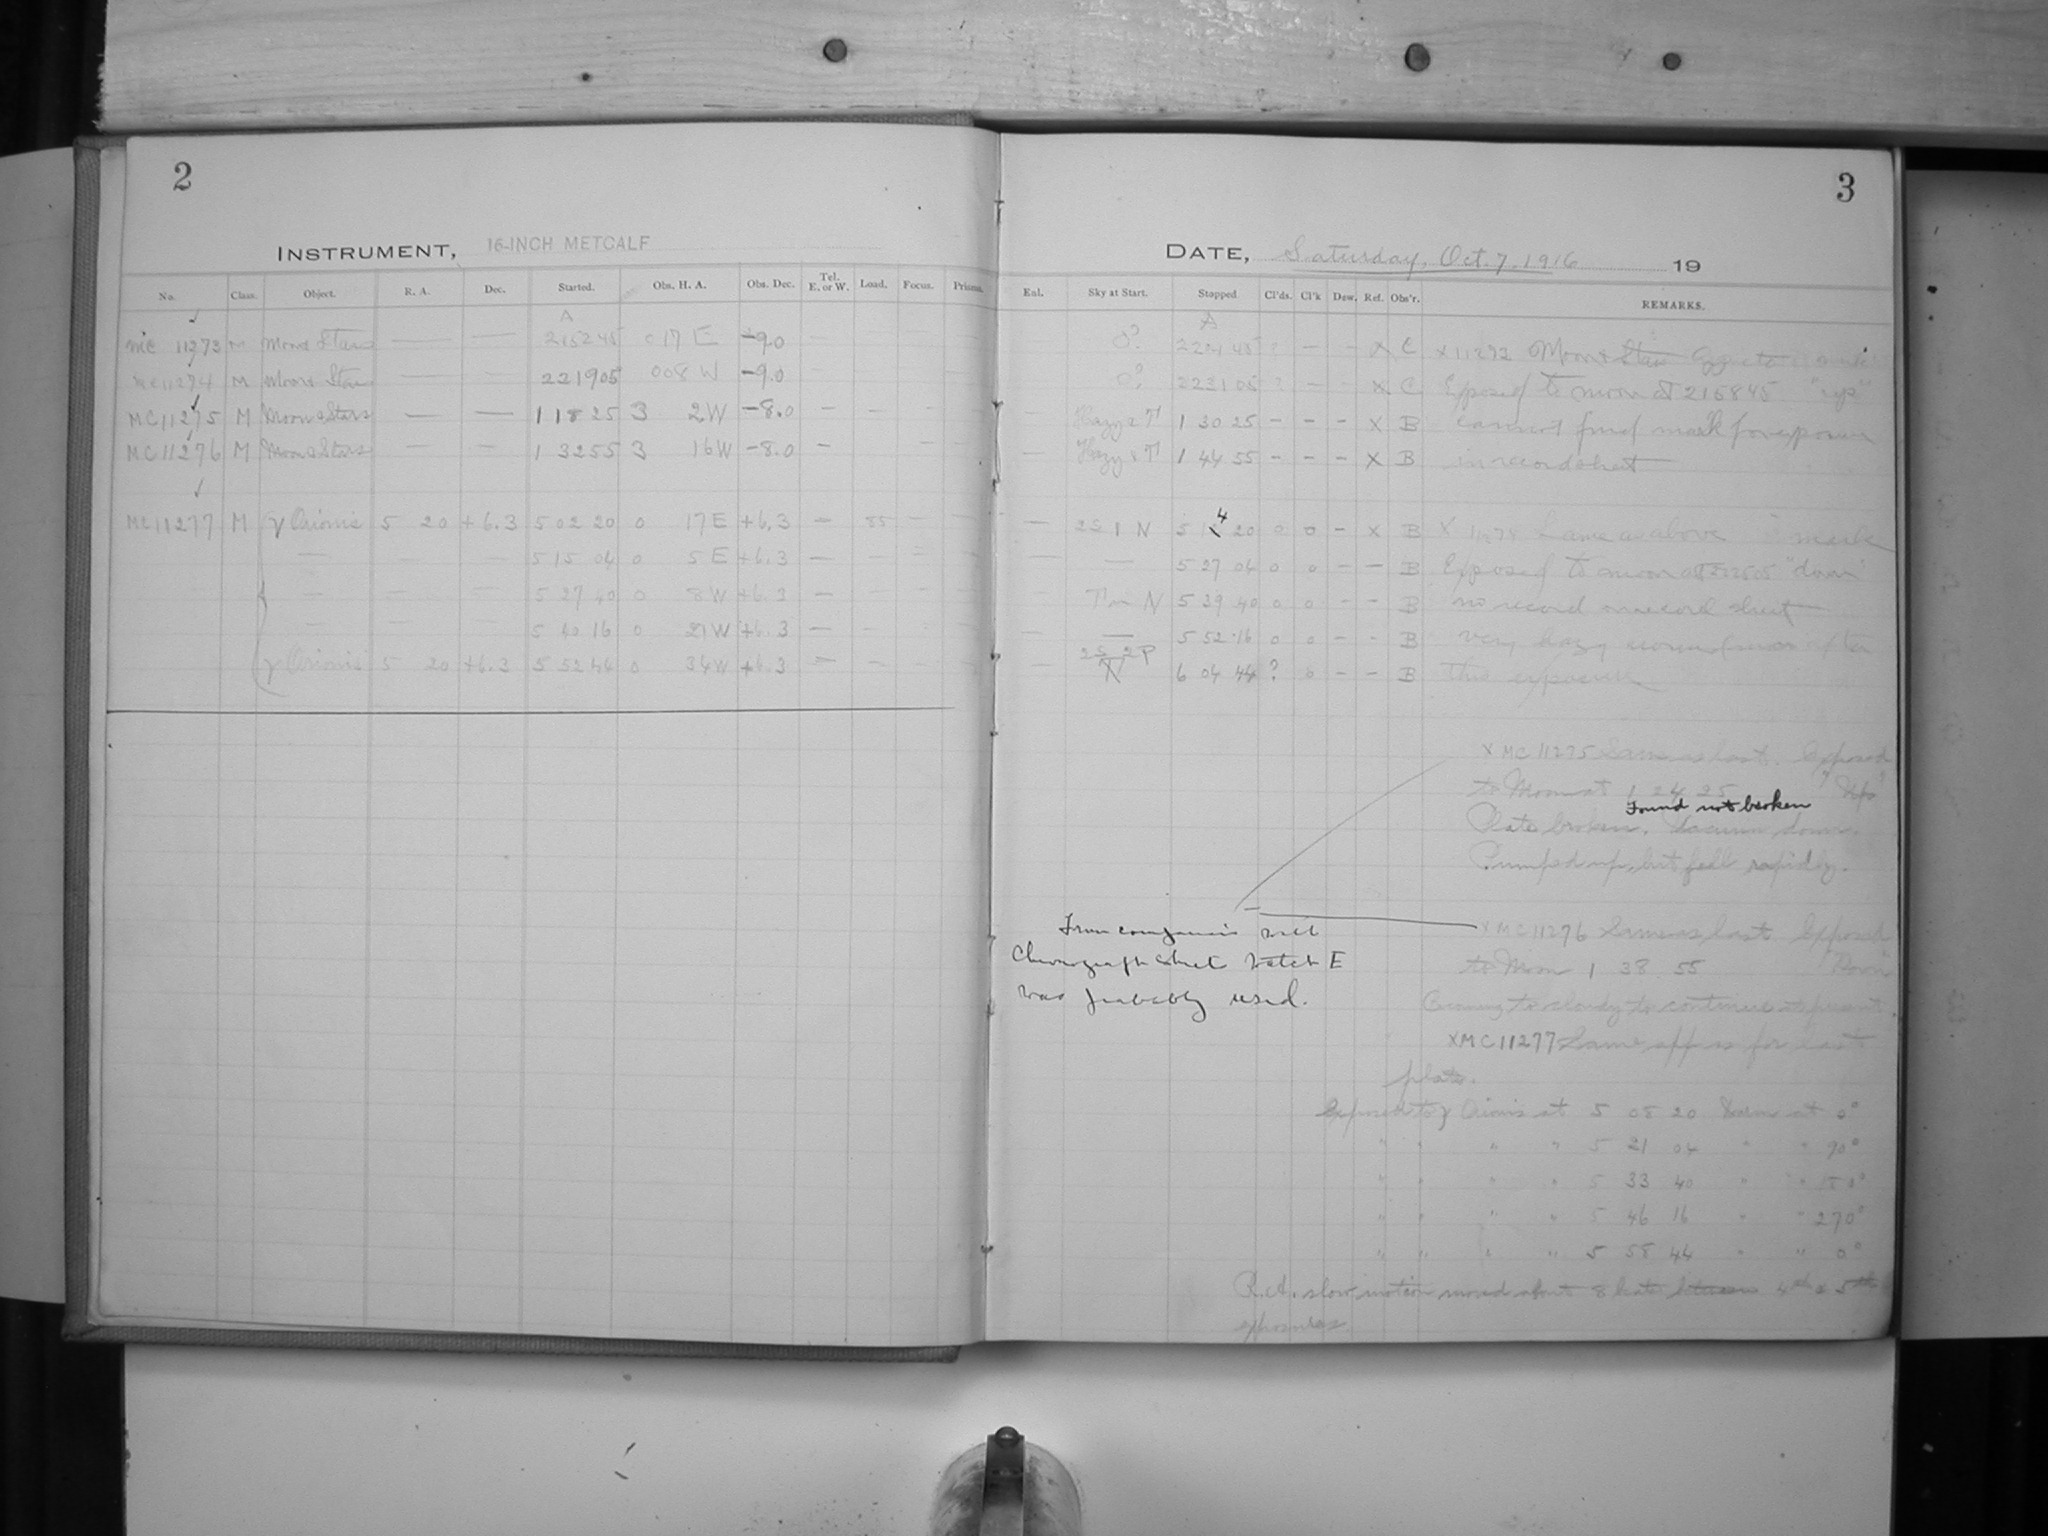 2
INSTRUMENT, 16-INCH METCALF
No. Class. Object. R. A. Dec. Started. Obs. H. A. Obs. Dec. Tel. E. or W. Load. Focus. Prisms.
A
MC 11273 M Moon & Stars — — 215245 0 17 E -9.0
MC11274 M Moon & Stars — — 221905 0 08 W -9.0
MC11275 M Moon & Stars — — 1 18 25 3 2W -8.0 —
MC11276 M Moon & Stars — — 1 32 55 3 16W -8.0 —
MC11277 M γ Orionis 5 20 +6.3 5 02 20 0 17 E +6.3 — 85 —
— — — 5 15 04 0 5 E +6.3 — —
— — — 5 27 40 0 8W +6.3 — —
— — — 5 40 16 0 21W +6.3 — —
γ Orionis 5 20 +6.3 5 52 44 0 34W +6.3 — —
3
DATE, Saturday, Oct. 7. 1916 19
Enl. Sky at Start. Stopped Cl'ds. Cl'k Dew. Ref. Obs'r. REMARKS.
A
0? 222145 ? — — X C X 11273 Moon & Stars
0? 223105 ? — — X C Exposed to moon at 215845 "up"
Hazy & T 1 30 25 — — — X B cannot find mark for exposure
Hazy & T 1 44 55 — — — X B in record sheet
— 2S 1 N 5 14 20 0 0 — X B X Same as above mark
— — 5 27 04 0 0 — — B Exposed to moon at "down"
N 5 39 40 0 0 — — B no record on record sheet
— — 5 52 16 0 0 — — B very hazy around moon after
— 2S 2P N 6 04 44 ? 0 — — B this exposure
X MC11275 Same as last. Exposed
to Moon at 1 24 25 "Up"
Found not broken
Plate broken. Vacuum down.
Pumped up, but fell rapidly.
From comparison with
Chronograph sheet watch E
was probably used.
X MC11276 Same as last Exposed
to Moon 1 38 55 "Down"
Coming to cloudy to continue at present.
XMC11277 Same app as for last
plate.
Exposed to γ Orionis at 5 08 20 Down at 0°
" " " " 5 21 04 " " 90°
" " " " 5 33 40 " " 180°
" " " " 5 46 16 " " 270°
" " " " 5 58 44 " " 0°
R.A. slow motion moved about 8 between 4th & 5th
exposures.